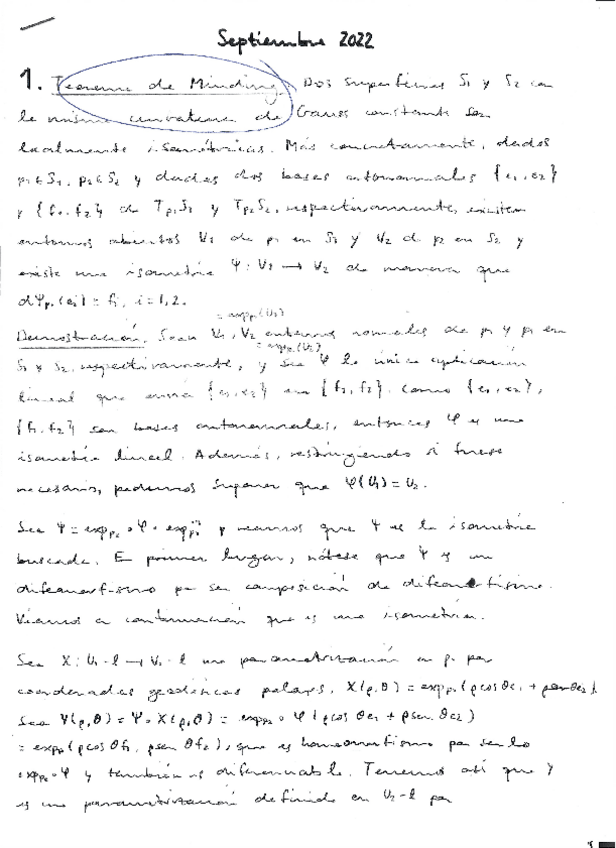 Septiembre 2022
1. Teorema de Minding. Dos superficies S1 y S2 con
la misma curvatura de Gauss constante son
localmente isométricas. Más concretamente, dados
p1∈S1, p2∈S2 y dadas dos bases ortonormales {e1,e2}
y {f1,f2} de Tp1S1 y Tp2S2, respectivamente, existen
entornos abiertos V1 de p1 en S1 y V2 de p2 en S2 y
existe una isometría Ψ: V1 → V2 de manera que
dΨp1(ei) = fi, i=1,2.
= expp1(U1)
Demostración. Sean V1, V2 entornos normales de p1 y p2 en
= expp2(U2)
S1 y S2, respectivamente, y sea φ la única aplicación
lineal que envía {e1,e2} en {f1,f2}. Como {e1,e2},
{f1,f2} son bases ortonormales, entonces φ es una
isometría lineal. Además, restringiendo si fuese
necesario, podemos suponer que φ(U1) = U2.
Sea Ψ = expp2 ∘ φ ∘ expp1⁻¹ y veamos que Ψ es la isometría
buscada. En primer lugar, nótese que Ψ es un
difeomorfismo por ser composición de difeomorfismos.
Veamos a continuación que es una isometría.
Sea X: U1-l → V1-l una parametrización en p1 por
coordenadas geodésicas polares, X(ρ,θ) = expp1(ρcosθe1 + ρsenθe2).
Sea Y(ρ,θ) = Ψ∘X(ρ,θ) = expp2 ∘ φ(ρcosθe1 + ρsenθe2)
= expp2(ρcosθf1, ρsenθf2), que es homeomorfismo por serlo
expp2∘φ y también es diferenciable. Tenemos así que Y
es una parametrización definida en U2-l por